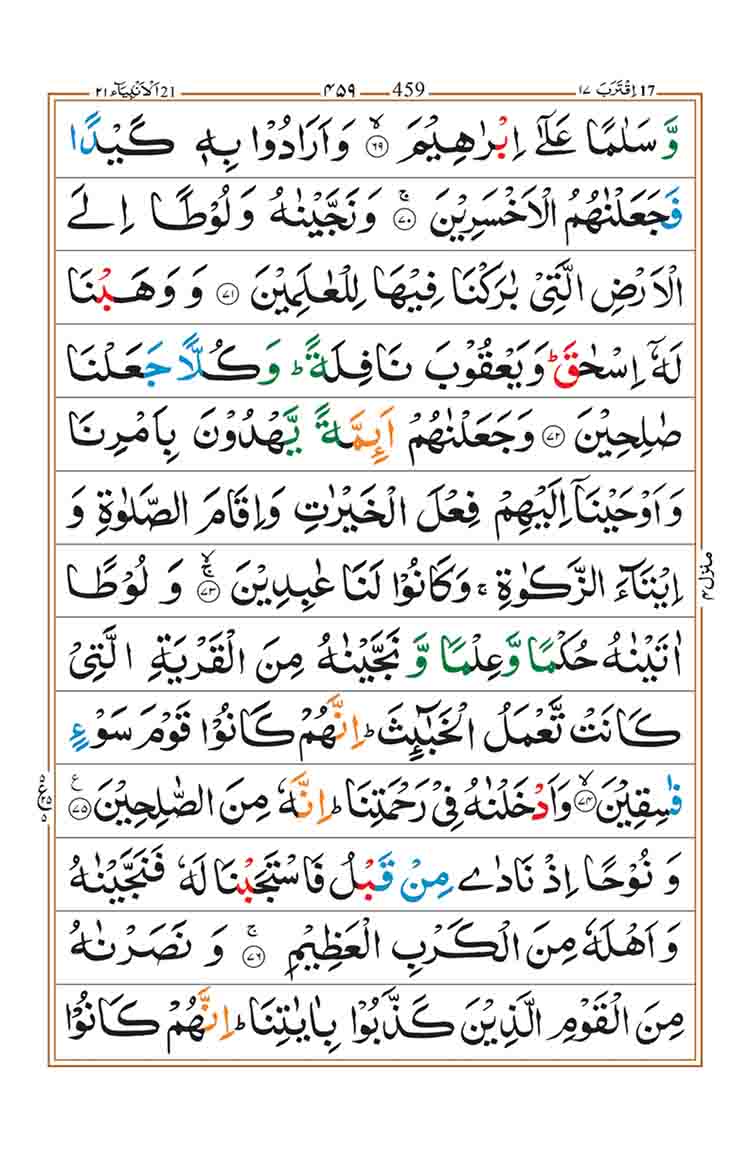 ٢١ اَلْاَنْۢبِيَآء 21 ٤٥٩ 459 اِقْتَرَبَ ١٧ 17
وَّ سَلٰمًا عَلٰٓى اِبْرٰهِيْمَ ۙ‏﴿۶۹﴾‏ وَ اَرَادُوْا بِهٖ كَيْدًا
فَجَعَلْنٰهُمُ الْاَخْسَرِيْنَ ۚ‏﴿۷۰﴾‏ وَ نَجَّيْنٰهُ وَ لُوْطًا اِلَى
الْاَرْضِ الَّتِيْ بٰرَكْنَا فِيْهَا لِلْعٰلَمِيْنَ ‏﴿۷۱﴾‏ وَ وَهَبْنَا
لَهٗۤ اِسْحٰقَ ؕ وَ يَعْقُوْبَ نَافِلَةً ؕ وَ كُلًّا جَعَلْنَا
صٰلِحِيْنَ ‏﴿۷۲﴾‏ وَ جَعَلْنٰهُمْ اَىِٕمَّةً يَّهْدُوْنَ بِاَمْرِنَا
وَ اَوْحَيْنَاۤ اِلَيْهِمْ فِعْلَ الْخَيْرٰتِ وَ اِقَامَ الصَّلٰوةِ وَ
اِيْتَآءَ الزَّكٰوةِ ۚ وَ كَانُوْا لَنَا عٰبِدِيْنَ ۚۙ‏﴿۷۳﴾‏ وَ لُوْطًا
اٰتَيْنٰهُ حُكْمًا وَّ عِلْمًا وَّ نَجَّيْنٰهُ مِنَ الْقَرْيَةِ الَّتِيْ
كَانَتْ تَّعْمَلُ الْخَبٰٓىِٕثَ ؕ اِنَّهُمْ كَانُوْا قَوْمَ سَوْءٍ
فٰسِقِيْنَ ۙ‏﴿۷۴﴾‏ وَ اَدْخَلْنٰهُ فِيْ رَحْمَتِنَا ؕ اِنَّهٗ مِنَ الصّٰلِحِيْنَ ‏﴿۷۵﴾‏ ع
وَ نُوْحًا اِذْ نَادٰى مِنْ قَبْلُ فَاسْتَجَبْنَا لَهٗ فَنَجَّيْنٰهُ
وَ اَهْلَهٗ مِنَ الْكَرْبِ الْعَظِيْمِ ۚ‏﴿۷۶﴾‏ وَ نَصَرْنٰهُ
مِنَ الْقَوْمِ الَّذِيْنَ كَذَّبُوْا بِاٰيٰتِنَا ؕ اِنَّهُمْ كَانُوْا
منزل ۴